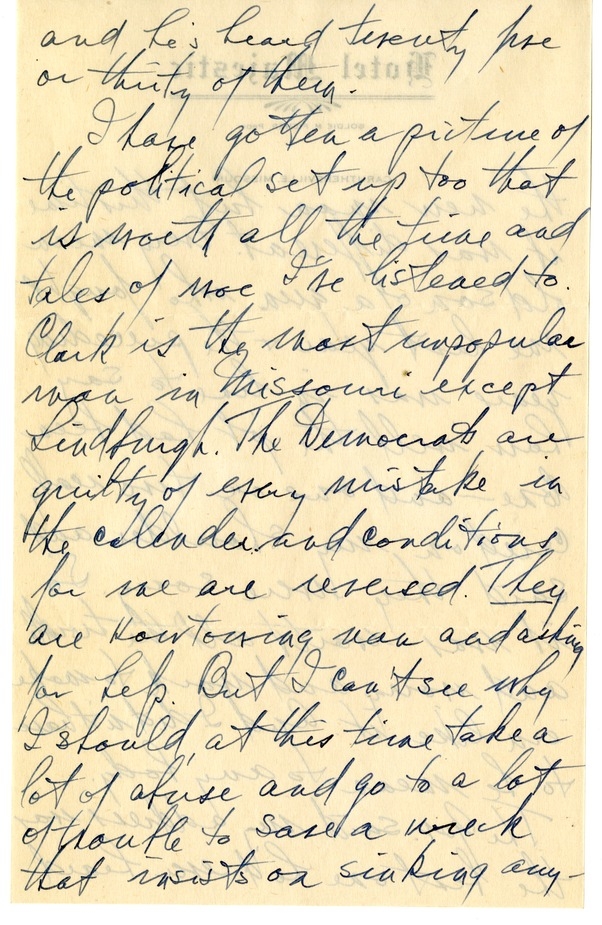 and he's heard twenty five
or thirty of them.
I have gotten a picture of
the political set up too that
is worth all the time and
tales of woe I've listened to.
Clark is the most unpopular
man in Missouri except
Lindburgh. The Democrats are
guilty of every mistake in
the calender and conditions
for me are reversed. They
are Kowtowing now and asking
for help. But I can't see why
I should, at this time take a
lot of abuse and go to a lot
of trouble to save a wreck
that insists on sinking any-
Hotel Majestic